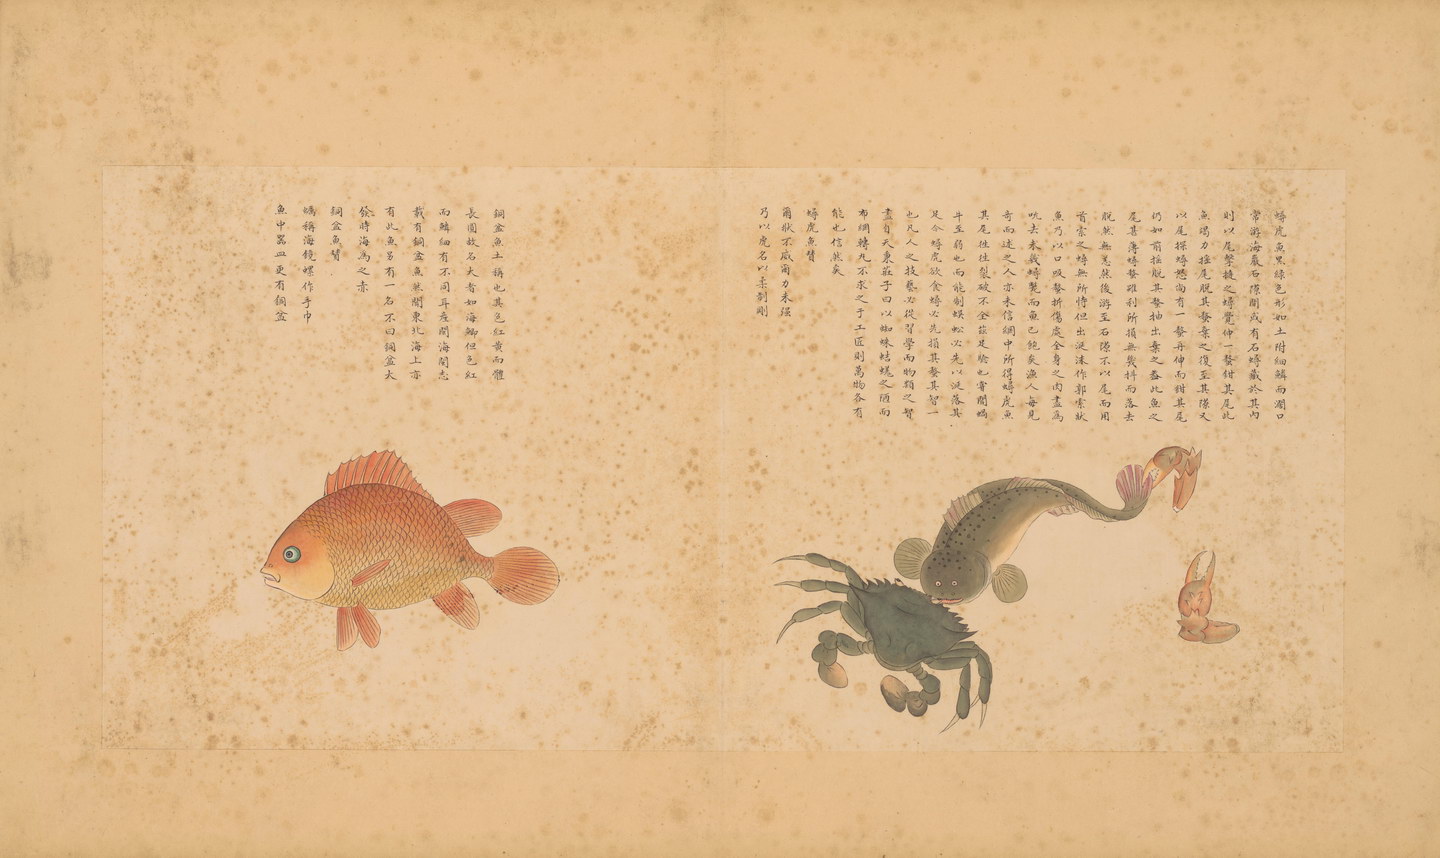 蟳虎魚黑綠色形如土附細鱗而濶口
常游海巖石隙間或有石蟳藏於其內
則以尾擊撻之蟳覺伸一螯鉗其尾此
魚竭力擺尾脫其螯棄之復至其隙又
以尾探蟳怒尚有一螯再伸而鉗其尾
仍如前擺脫其螯抽出棄之蓋此魚之
尾甚薄蟳螯雖利所損無幾抖而落去
脫然無恙然後游至石隙不以尾而用
首索之蟳無所恃但出涎沫作郭索狀
魚乃以口吸螯折傷處全身之肉盡為
吮去未幾蟳斃而魚已飽矣漁人每見
奇而述之人亦未信網中所得蟳虎魚
其尾往往裂破不全茲足驗也嘗聞蝸
牛至弱也而能制蜈蚣必先以涎落其
足今蟳虎欲食蟳必先損其螯其智一
也凡人之技藝必從習學而物類之智
盡自天稟莊子曰以蜘蛛蛣蜣之陋而
布網轉丸不求之于工匠則萬物各有
能也信然矣
蟳虎魚贊
爾狀不威爾力未强
乃以虎名以柔制剛
銅盆魚土稱也其色紅黃而體
長圓故名大者如海鯽但色紅
而鱗細有不同耳產閩海閩志
載有銅盆魚然閩東北海上亦
有此魚另有一名不曰銅盆大
發時海為之赤
銅盆魚贊
蠣稱海鏡螺作手巾
魚中器皿更有銅盆